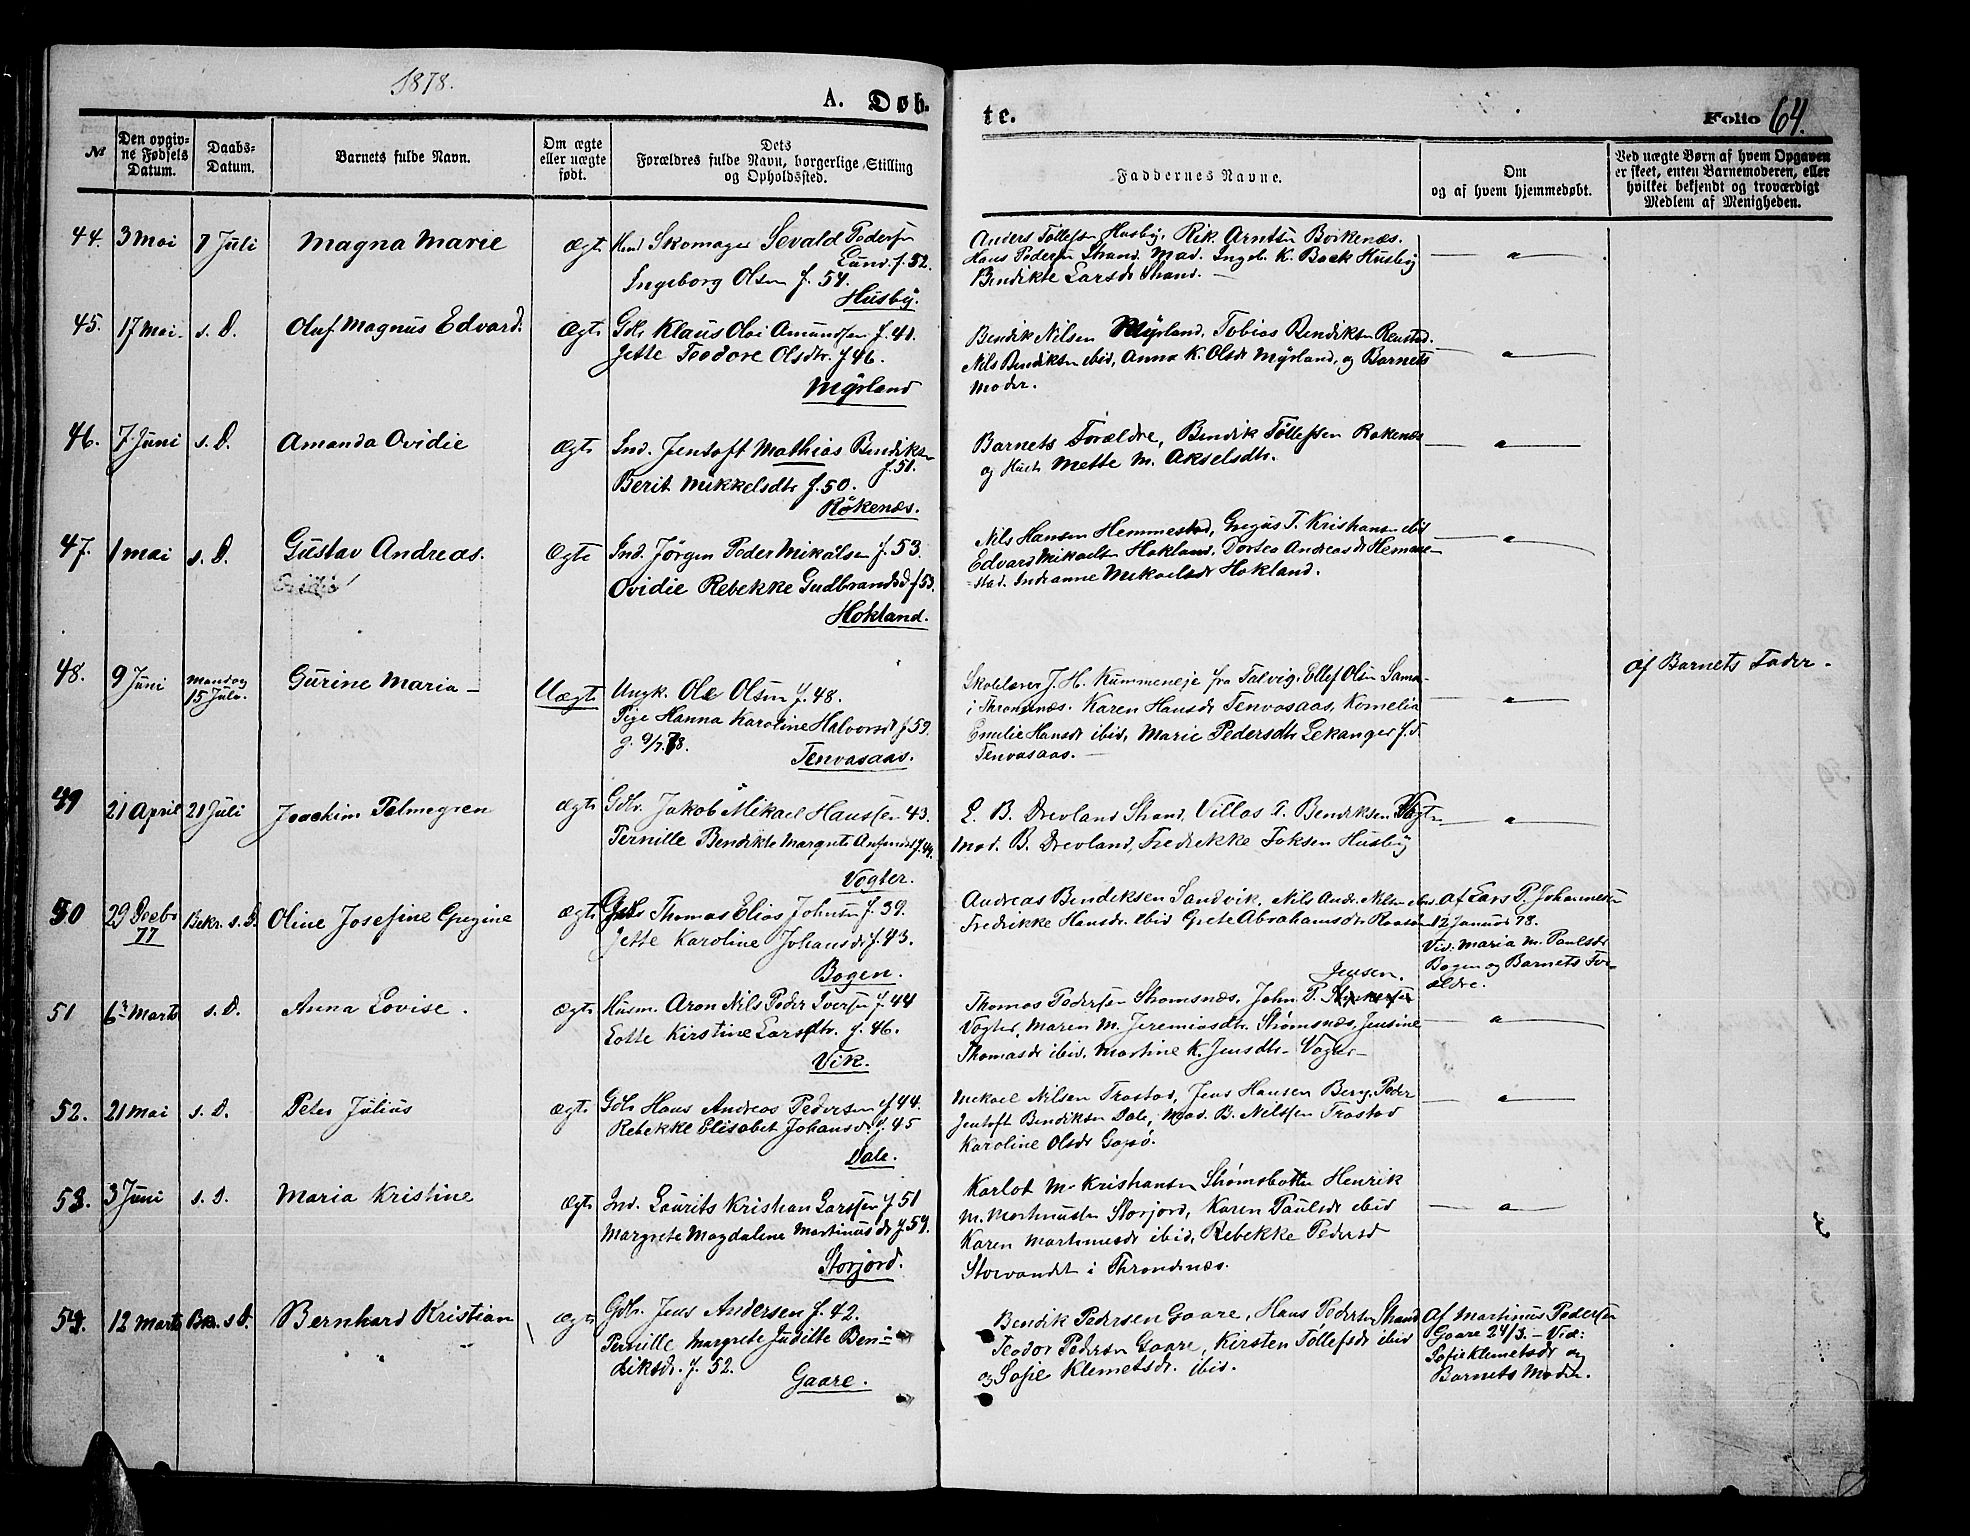 1878.
A. Døb-
te.
Folio 64.
№
Den opgiv-
ne Fødsels
Datum.
Daabs-
Datum.
Barnets fulde Navn.
Om ægte
eller uægte
født.
Dets
Forældres fulde Navn, borgerlige Stilling
og Opholdssted.
Faddernes Navne.
Om
og af hvem hjemmedøbt.
Ved uægte Børn af hvem Opgaven
er skeet, enten Barnemoderen, eller
hvilket bekjendt og troværdigt
Medlem af Menigheden.
44. 3 Mai 7 Juli Magna Marie Ægte Skomager Sevald Pedersen
Lund f. 52.
Ingeborg Olsen f. 54.
Husby.
Anders Tollefsen Husby, Rik. Arntsen Boikenæs.
Hans Pedersen Strand. Mad. Ingeb. K. Back Husby
Bendikte Larsdr Strand. —
— a —
45. 17 Mai s. D. Oluf Magnus Edvard. Ægte Gdbr. Klaus Olai Amundsen f. 41.
Jette Teodore Olsdtr. f 46.
Myrland
Bendik Nilsen Myrland, Tobias Bendiksen Renstad.
Nils Bendiksen ibid, Anna K. Olsdr Myrland, og Barnets
Moder.
— a —
46. 7 Juni s. D. Amanda Ovidie Ægte Ind. Jentoft Mathias Bendiksen
f. 51.
Berit Mikkelsdtr f. 50.
Rökenæs.
Barnets Forældre, Bendik Tollefsen Rokenæs
og Mette M. Akselsdtr.
— a —
47. 1 Mai s. D. Gustav Andreas. Ægte Ind. Jörgen Peder Mikalsen f. 53.
Ovidie Rebekke Gudbrandsd f 53.
Hokland.
Nils Hansen Hemmestad, Gregus T. Kristiansen ibid
Edvard Mikaelsen Hokland. Dortea Andreasdr Hemme-
stad. Indianne Mikaelsdr Hokland.
— a —
48. 9 Juni Mandag
15 Juli. Gurine Maria — Uægte Ungk. Ole Olsen f. 48.
Pige Hanna Karoline Halvorsdr f 59.
g. 9/7.78.
Tenvasaas.
Skolelærer J. H. Kummeneje fra Talvig, Ellef Olsen Sama
i Throndenæs. Karen Hansdr Tenvasaas, Kornelia
Emilie Hansdr ibid, Marie Pedersdtr Lekanger f. t.
Tenvasaas. —
— a —
Af Barnets Fader —
49 21 April 21 Juli Joachim Palmegren Ægte Gdbr. Jakob Mikael Hanssen 43.
Pernille Bendikte Margrete f. 44.
Vogter.
L. B. Drevland Strand, Villas P. Bendiksen Vogter
Mad. B. Drevland, Fredrikke Foksen Husby
— a —
50 29 Decbr
77 Bekr. s. D. Oline Josefine Gregine Ægte Gdbr Thomas Elias Johnsen f. 39.
Jette Karoline Johansdr f. 43.
Bogen.
Andreas Bendiksen Sandvik. Nils Andr. Nilsen ibid.
Fredrikke Hansdr. ibid Grete Abrahamsdtr
Af Lars P. Johannesen
12 Januar 78.
Vid: Maria M. Paulsdr
Bogen og Barnets For-
ældre.
51 6 Marts s. D. Anna Lovise. Ægte Husm. Aron Nils Peder Iversen f. 44
Lotte Kirstine Larsdtr. f. 46.
Vik.
Jensen.
Thomas Pedersen Stromsnæs, John P.
Vogter, Maren M. Jeremiasdtr. Strømsnæs, Jensine
Thomasdr ibid. Martine K. Jensdtr. Vogter —
— a —
52. 21 Mai s. D. Peter Julius Ægte Gdbr Hans Andreas Pedersen f 44.
Rebekke Elisabet Johansdr f. 45
Dale.
Mikael Nilsen Trastad, Jens Hansen Berg, Peder
Jentoft Bendiksen Dale, Mad. B. Nilssen Trastad
Karoline Olsdr Gapsø.
— a —
53. 3 Juni s. D. Maria Kristine Ægte Ind. Laurits Kristian Larssen f 51
Margrete Magdalene Martinusdr f 54.
Storjord.
Karlot M. Kristiansen Strømsbotten Henrik
M. Martinussen Storjord, Karen Paulsdr ibid
Karen Martinusdr ibid, Rebekke Pedersd
Storvandet i Throndenæs.
— a —
54. 12 Marts Bk. s D. Bernhard Kristian Ægte Gdbr. Jens Andersen f. 42.
Pernille Margrete Juditte Ben-
diksdr. f. 52.
Gaare.
Bendik Pedersen Gaare, Hans Pedersen Strand
Teodor Pedersen Gaare, Kirsten Tollefsdr ibid
og Sofie Klemetsdr. ibid.
Af Martinus Pedersen
Gaare 24/3. — Vid:
Sofie Klemetsdr og
Barnets Moder.